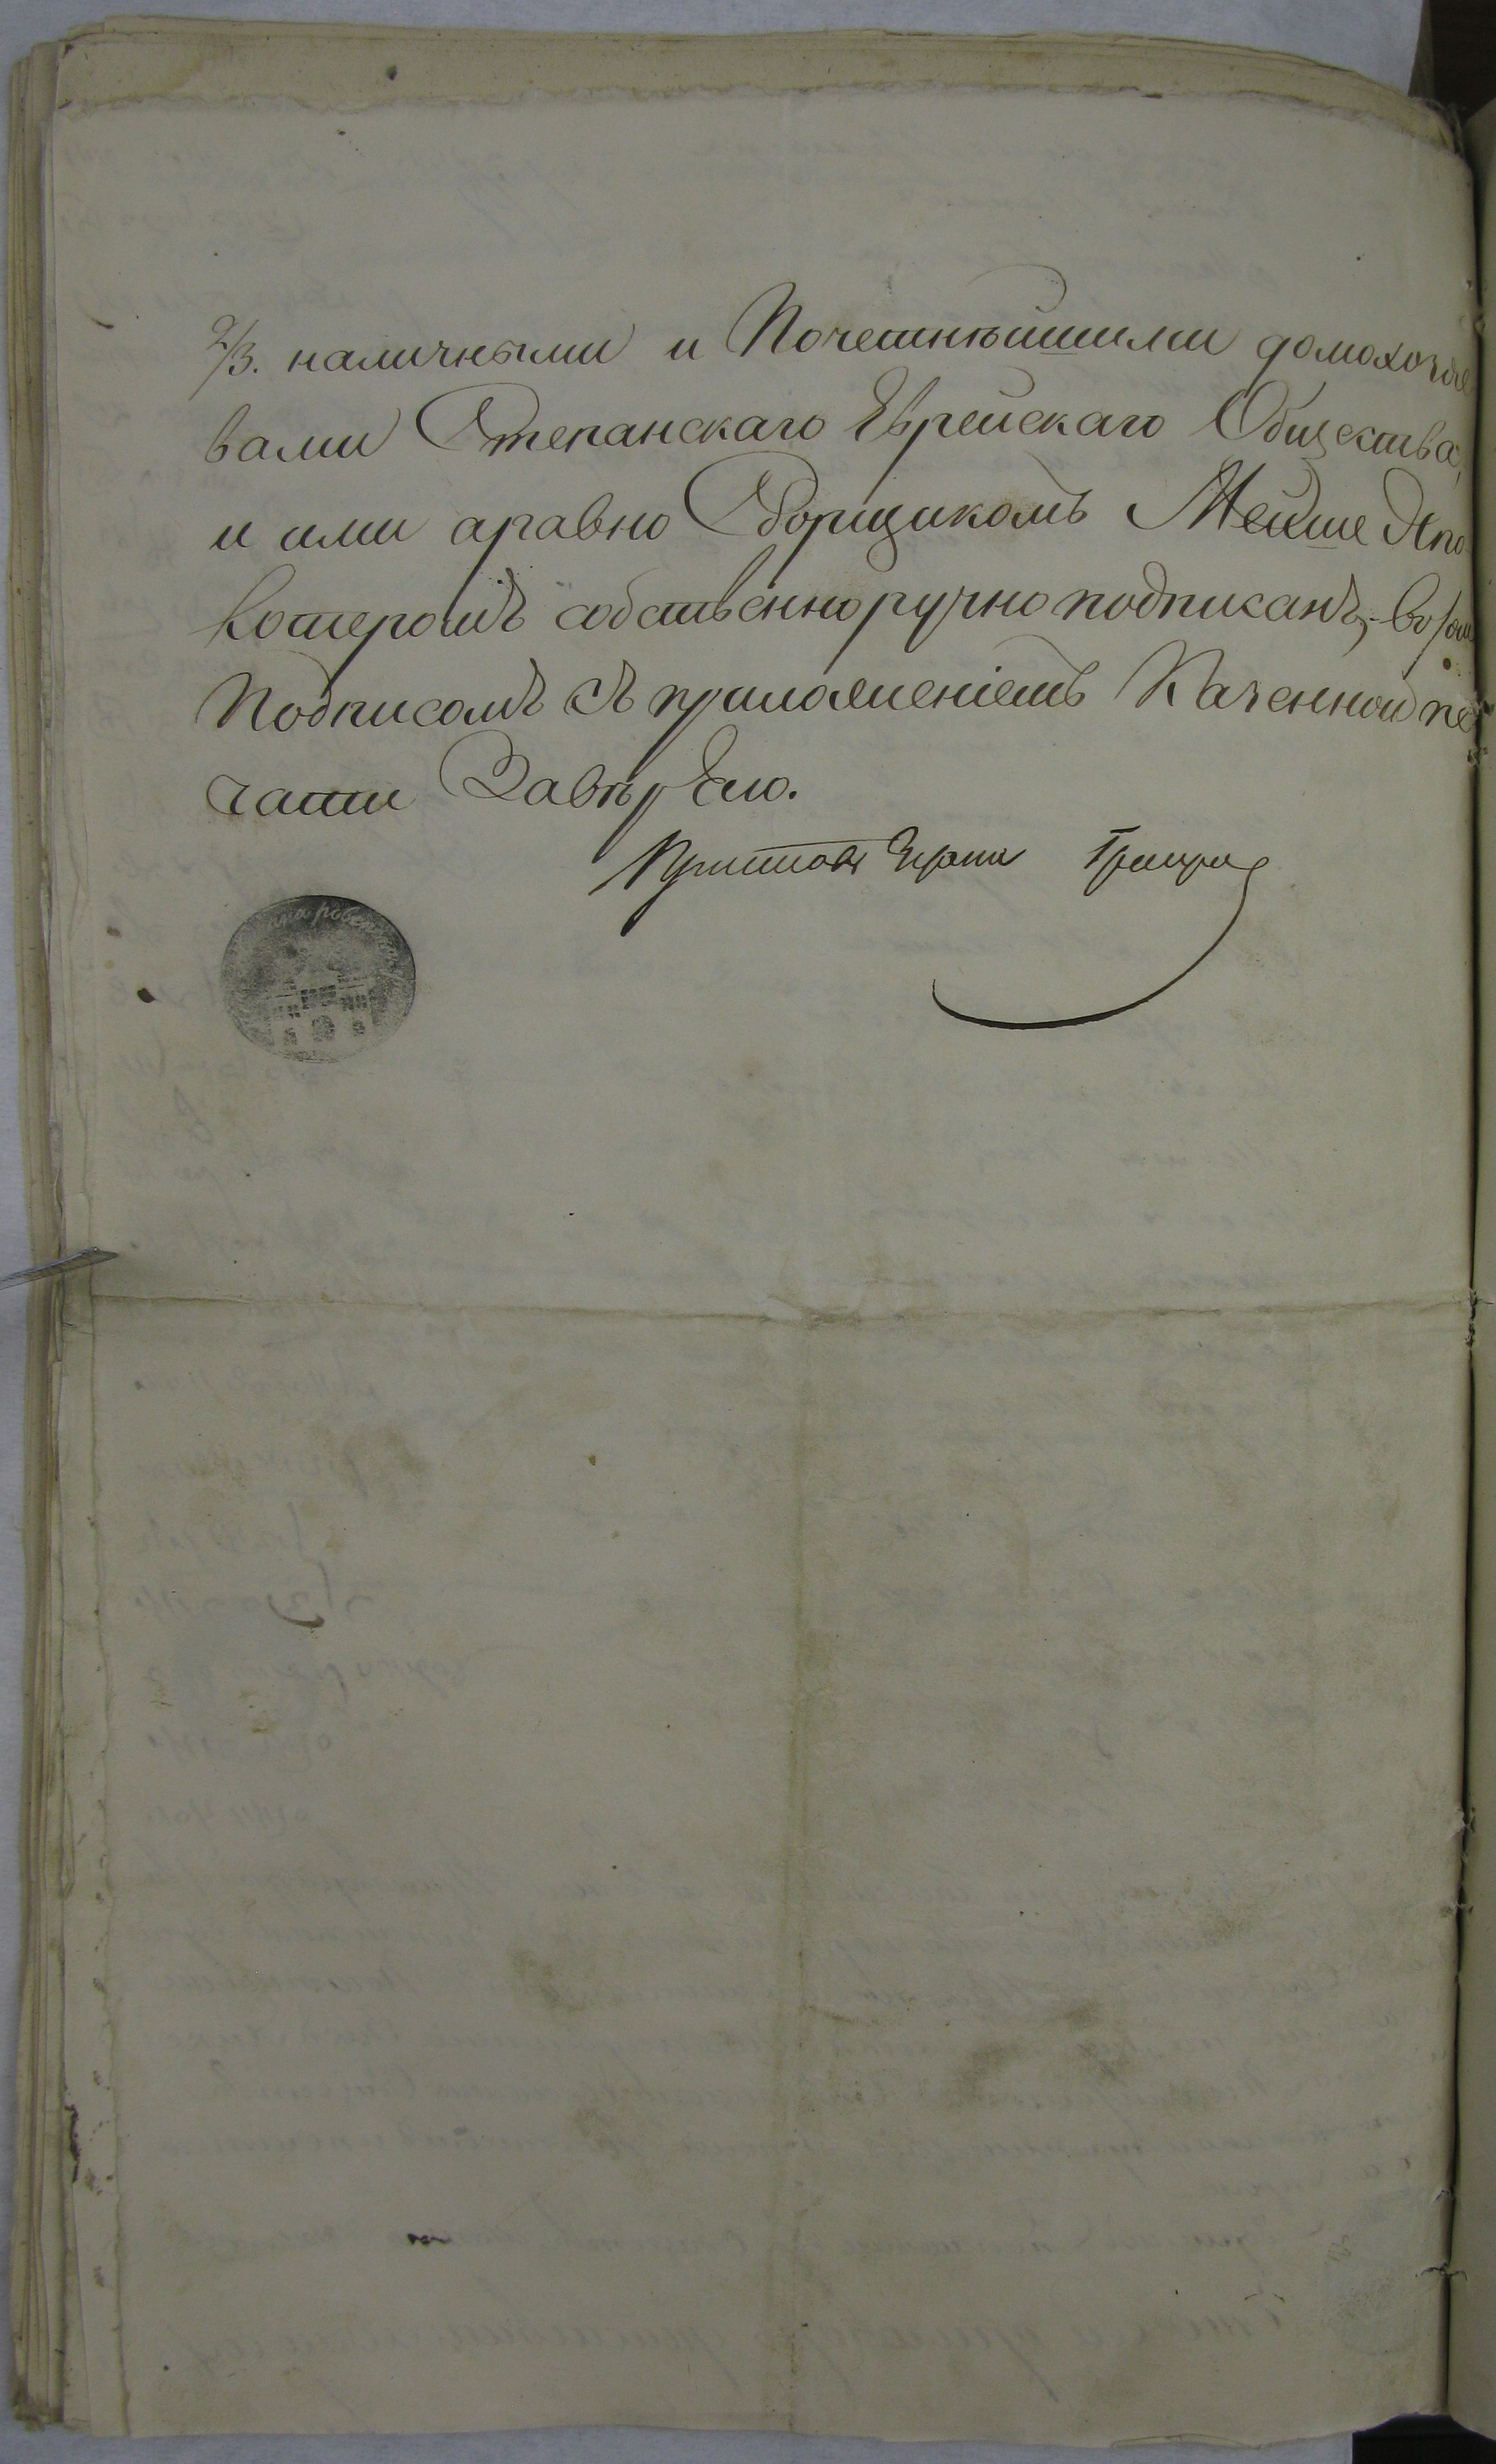 2/3. наличными и Почетнѣйшими домохозяе
вами Степанскаго Еврейскаго Общества,
и ими аравно Сборщикомъ Мейше Апо
котеромъ собственноручно подписанъ, въ том
Подписомъ съ приложеніемъ Казенной пе
чати Завѣряю.
Приставъ